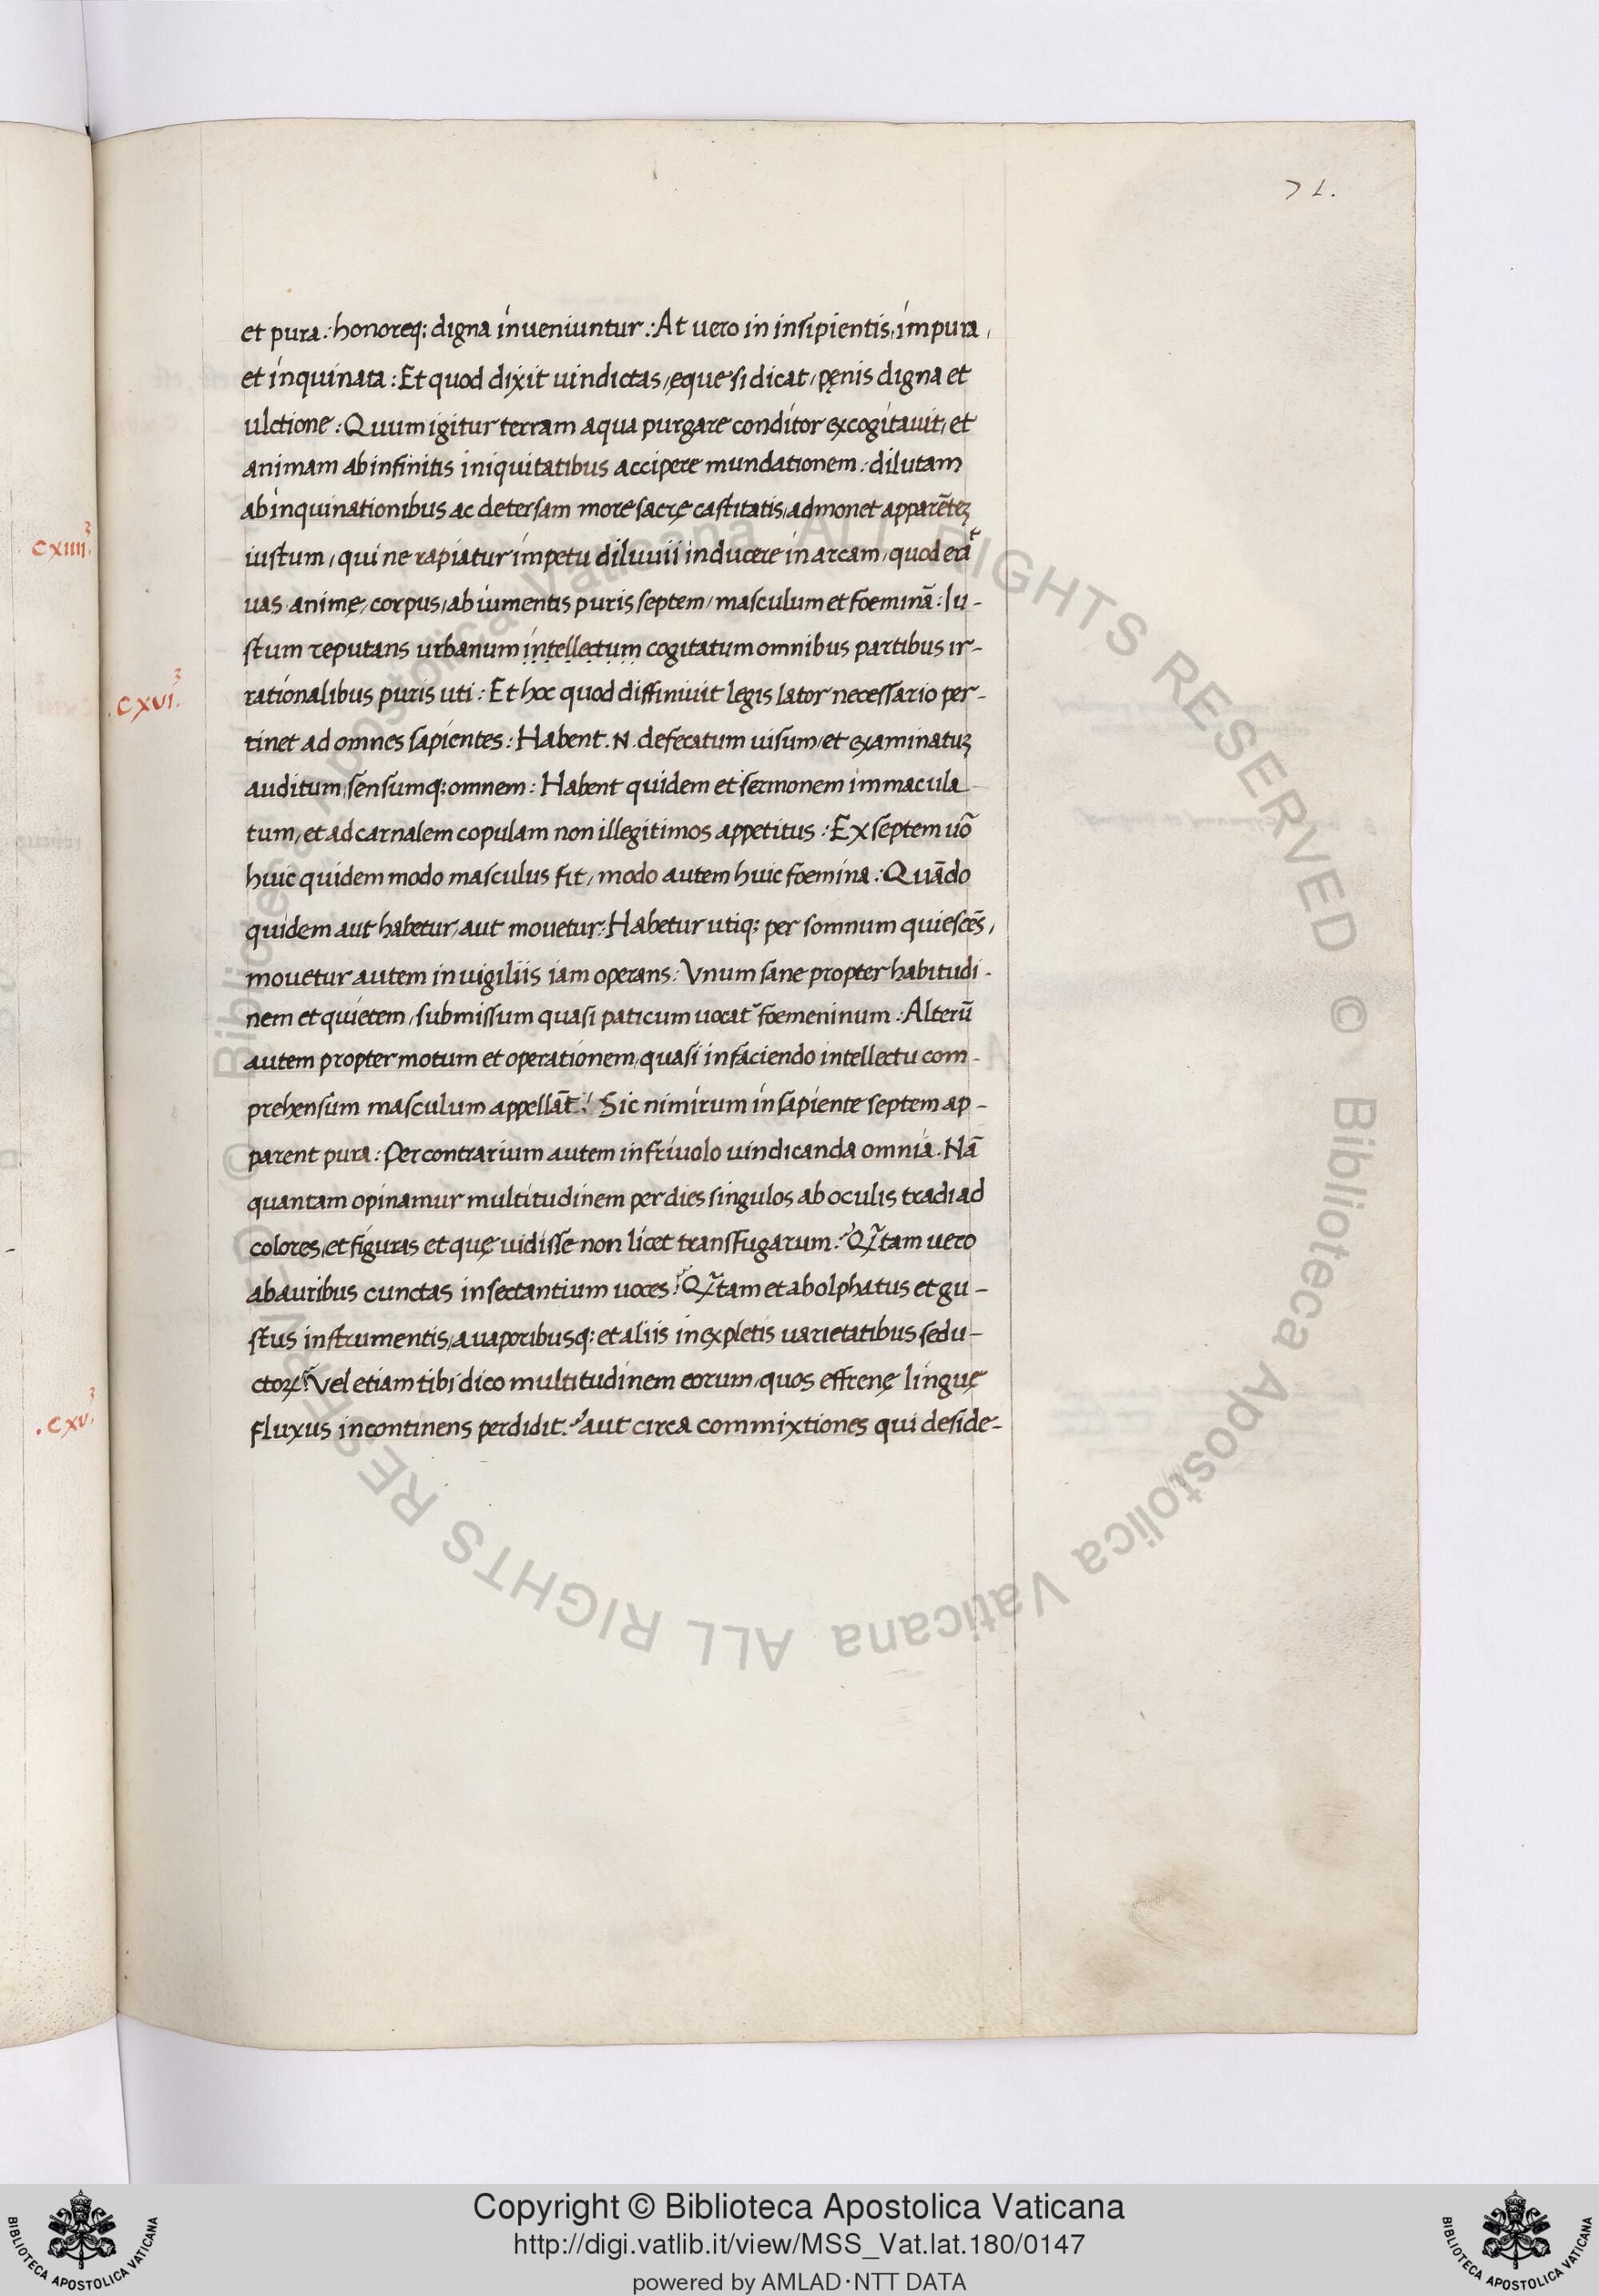 71.
et pura: honoreq; digna inueniuntur: At uero in insipientis, impura,
et inquinata: Et quod dixit uindictas, ęque si dicat, pęnis digna et
ulctione: Quum igitur terram aqua purgare conditor excogitauit, et
animam ab infinitis iniquitatibus accipere mundationem: dilutam
ab inquinationibus ac detersam more sacrę castitatis, admonet apparēteꝫ
iustum, qui ne rapiatur impetu diluuii inducere in arcam, quod erat
uas animę, corpus, ab iumentis puris septem, masculum et foeminā: Iu-
stum reputans urbanum intellectum cogitatum omnibus partibus ir-
cxvi.
rationalibus puris uti: Et hoc quod diffiniuit legis lator necessario per-
tinet ad omnes sapientes: Habent .N. defecatum uisum, et examinatuꝫ
auditum, sensumq; omnem: Habent quidem et sermonem immacula
tum, et ad carnalem copulam non illegitimos appetitus: Ex septem uō
huic quidem modo masculus fit, modo autem huic foemina: Quādo
quidem aut habetur, aut mouetur: Habetur utiq; per somnum quiescēs,
mouetur autem in uigiliis iam operans: Vnum sane propter habitudi-
nem et quietem, submissum quasi paticum uocat᷑ foemeninum: Alterū
autem propter motum et operationem, quasi in faciendo intellectu com-
prehensum masculum appellāt: Sic nimirum in sapiente septem ap-
parent pura: Per contrarium autem in friuolo uindicanda omnia. Nā
quantam opinamur multitudinem per dies singulos ab oculis tradi ad
colores, et figuras et quę uidisse non licet transfugarum? Qᷓtam uero
ab auribus cunctas insectantium uoces? Qᷓtam et ab olphatus et gu-
stus instrumentis, a uaporibusq; et aliis inexpletis uarietatibus sedu-
ctoꝝ? Vel etiam tibi dico multitudinem eorum, quos effrenę linguę
fluxus incontinens perdidit? aut circa commixtiones qui deside-
cxiiii.
.cxv.
Copyright © Biblioteca Apostolica Vaticana
http://digi.vatlib.it/view/MSS_Vat.lat.180/0147
powered by AMLAD·NTT DATA
BIBLIOTECA APOSTOLICA VATICANA
BIBLIOTECA APOSTOLICA VATICANA
© Biblioteca Apostolica Vaticana ALL RIGHTS RESERVED
© Biblioteca Apostolica Vaticana ALL RIGHTS RESERVED